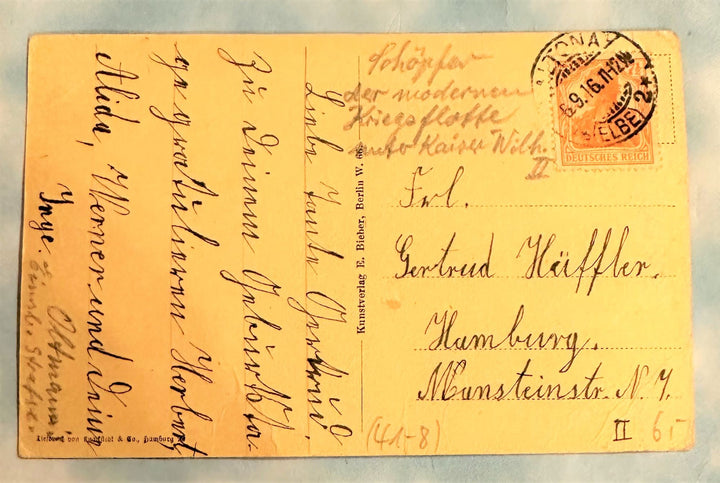 Liebe Tante Gertrud,
zu Deinem Geburtsta-
ge gratulieren Herbert,
Alida, Werner und Deine
Inge.
Schöpfer
der modernen
Kriegsflotte
unto Kaiser Wilh.
II
ALTONA
6.9.16.11-12V
(ELBE) 2
DEUTSCHES REICH
Kunstverlag E. Bieber, Berlin W. 66.
Frl.
Gertrud Häffler.
Hamburg.
Mansteinstr. N. 7.
II
(41-8)
II 6,-
Tiefdruck von & Co., Hamburg